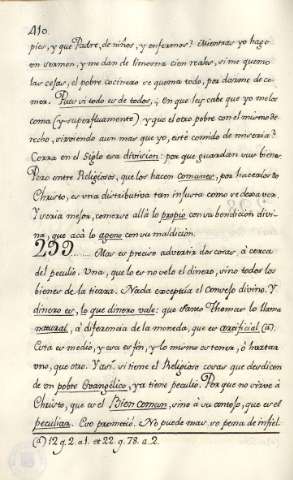 410.
pies, y que Padre, de niños, y enfermos? Mientras yo hago
un sermon, y me dan de limosna cien reales, si me quemo
las cejas, el pobre cocinero se quema todo, por darme de co-
mer. Pues si todo es de todos, ¿En que ley cabe que yo melos
coma (y superfluamente) y que el otro pobre con el mismo de-
recho, sirviendo aun mas que yo, esté comido de miseria?
Corra en el Siglo esa division: por que guardan sus biene
Pero entre Religiosos, que los hacen comunes, por hacerlos de
Christo, es una distributiva tan injusta como se dexa ver.
Y seria mejor, comerse allá lo propio con su bendicion divi-
na, que acá lo ageno con su maldicion.
299..... Mas es preciso advertir dos cosas, á cerca
del peculio. Una, que lo es no solo el dinero, sino todos los
bienes de la tierra. Nada exceptúa el Consejo divino. Y
dinero es, lo que dinero vale: que Santo Thomas lo llama
natural, á diferencia de la moneda, que es artificial (a).
Esta es medio, y esa es fin, y lo mismo es tener, ó hurtar
uno, que otro. Y asi, si tiene el Religioso cosas que desdicen
de un pobre Evangélico, ya tiene peculio. Por que no sirve á
Christo, que es el Bien Comun, sino á su antojo, que es el
peculiar. Eso prometió. No puede mas, so pena de infiel.
(a) 12. q. 2. a 1. et 22. q. 78. a. 2.